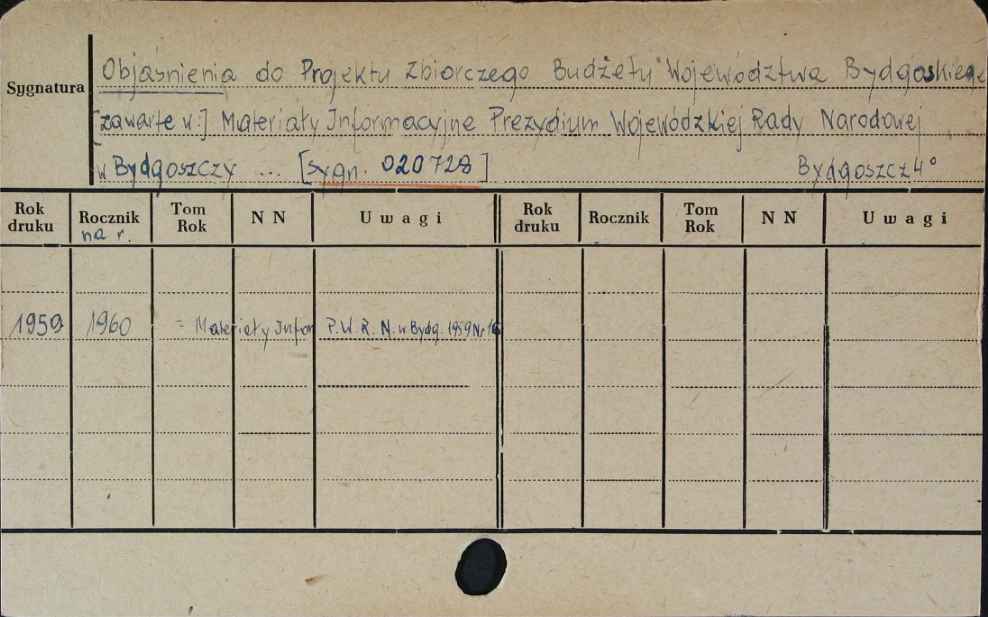 Objaśnienia do Projektu Zbiorczego Budżetu Województwa Bydgoskiego
Sygnatura
[zawarte w:] Materiały Informacyjne Prezydium Wojewódzkiej Rady Narodowej
w Bydgoszczy ... [sygn. 020728] Bydgoszcz 4°
Rok druku Rocznik na r. Tom Rok N N Uwagi Rok druku Rocznik Tom Rok N N Uwagi
1959 1960 = Materiały Infor P.W.R.N. w Bydg. 1959 Nr 16